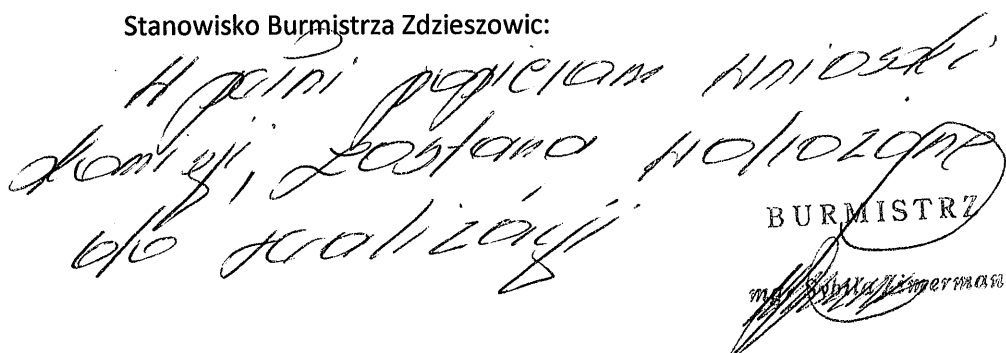 Stanowisko Burmistrza Zdzieszowic:
W pełni popieram wnioski
komisji, zostaną wdrożone
do realizacji
BURMISTRZ
mgr Sybilla Zimerman